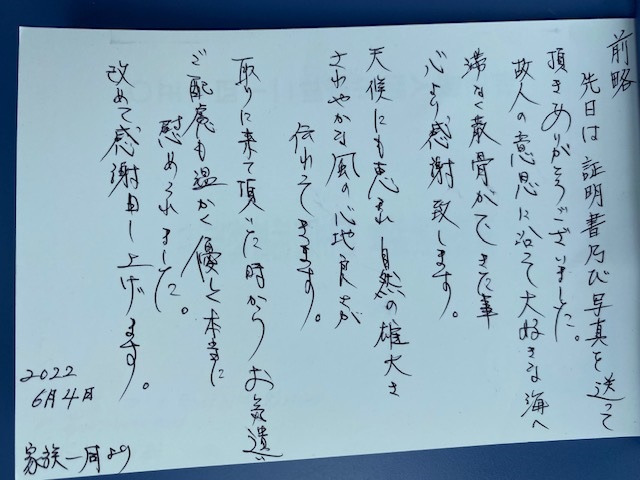 前略
先日は証明書乃び写真を送って
頂きありがとうございました。
故人の意思に沿って大好きな海へ
滞なく散骨ができた事
心より感謝致します。
天候にも恵まれ自然の雄大さ
さわやかな風の心地良さが
伝わってきます。
取りに来て頂いた時からお気遣い
ご配慮も温かく優しく本当に
慰められました。
改めて感謝申し上げます。
2022
6月4日
家族一同より